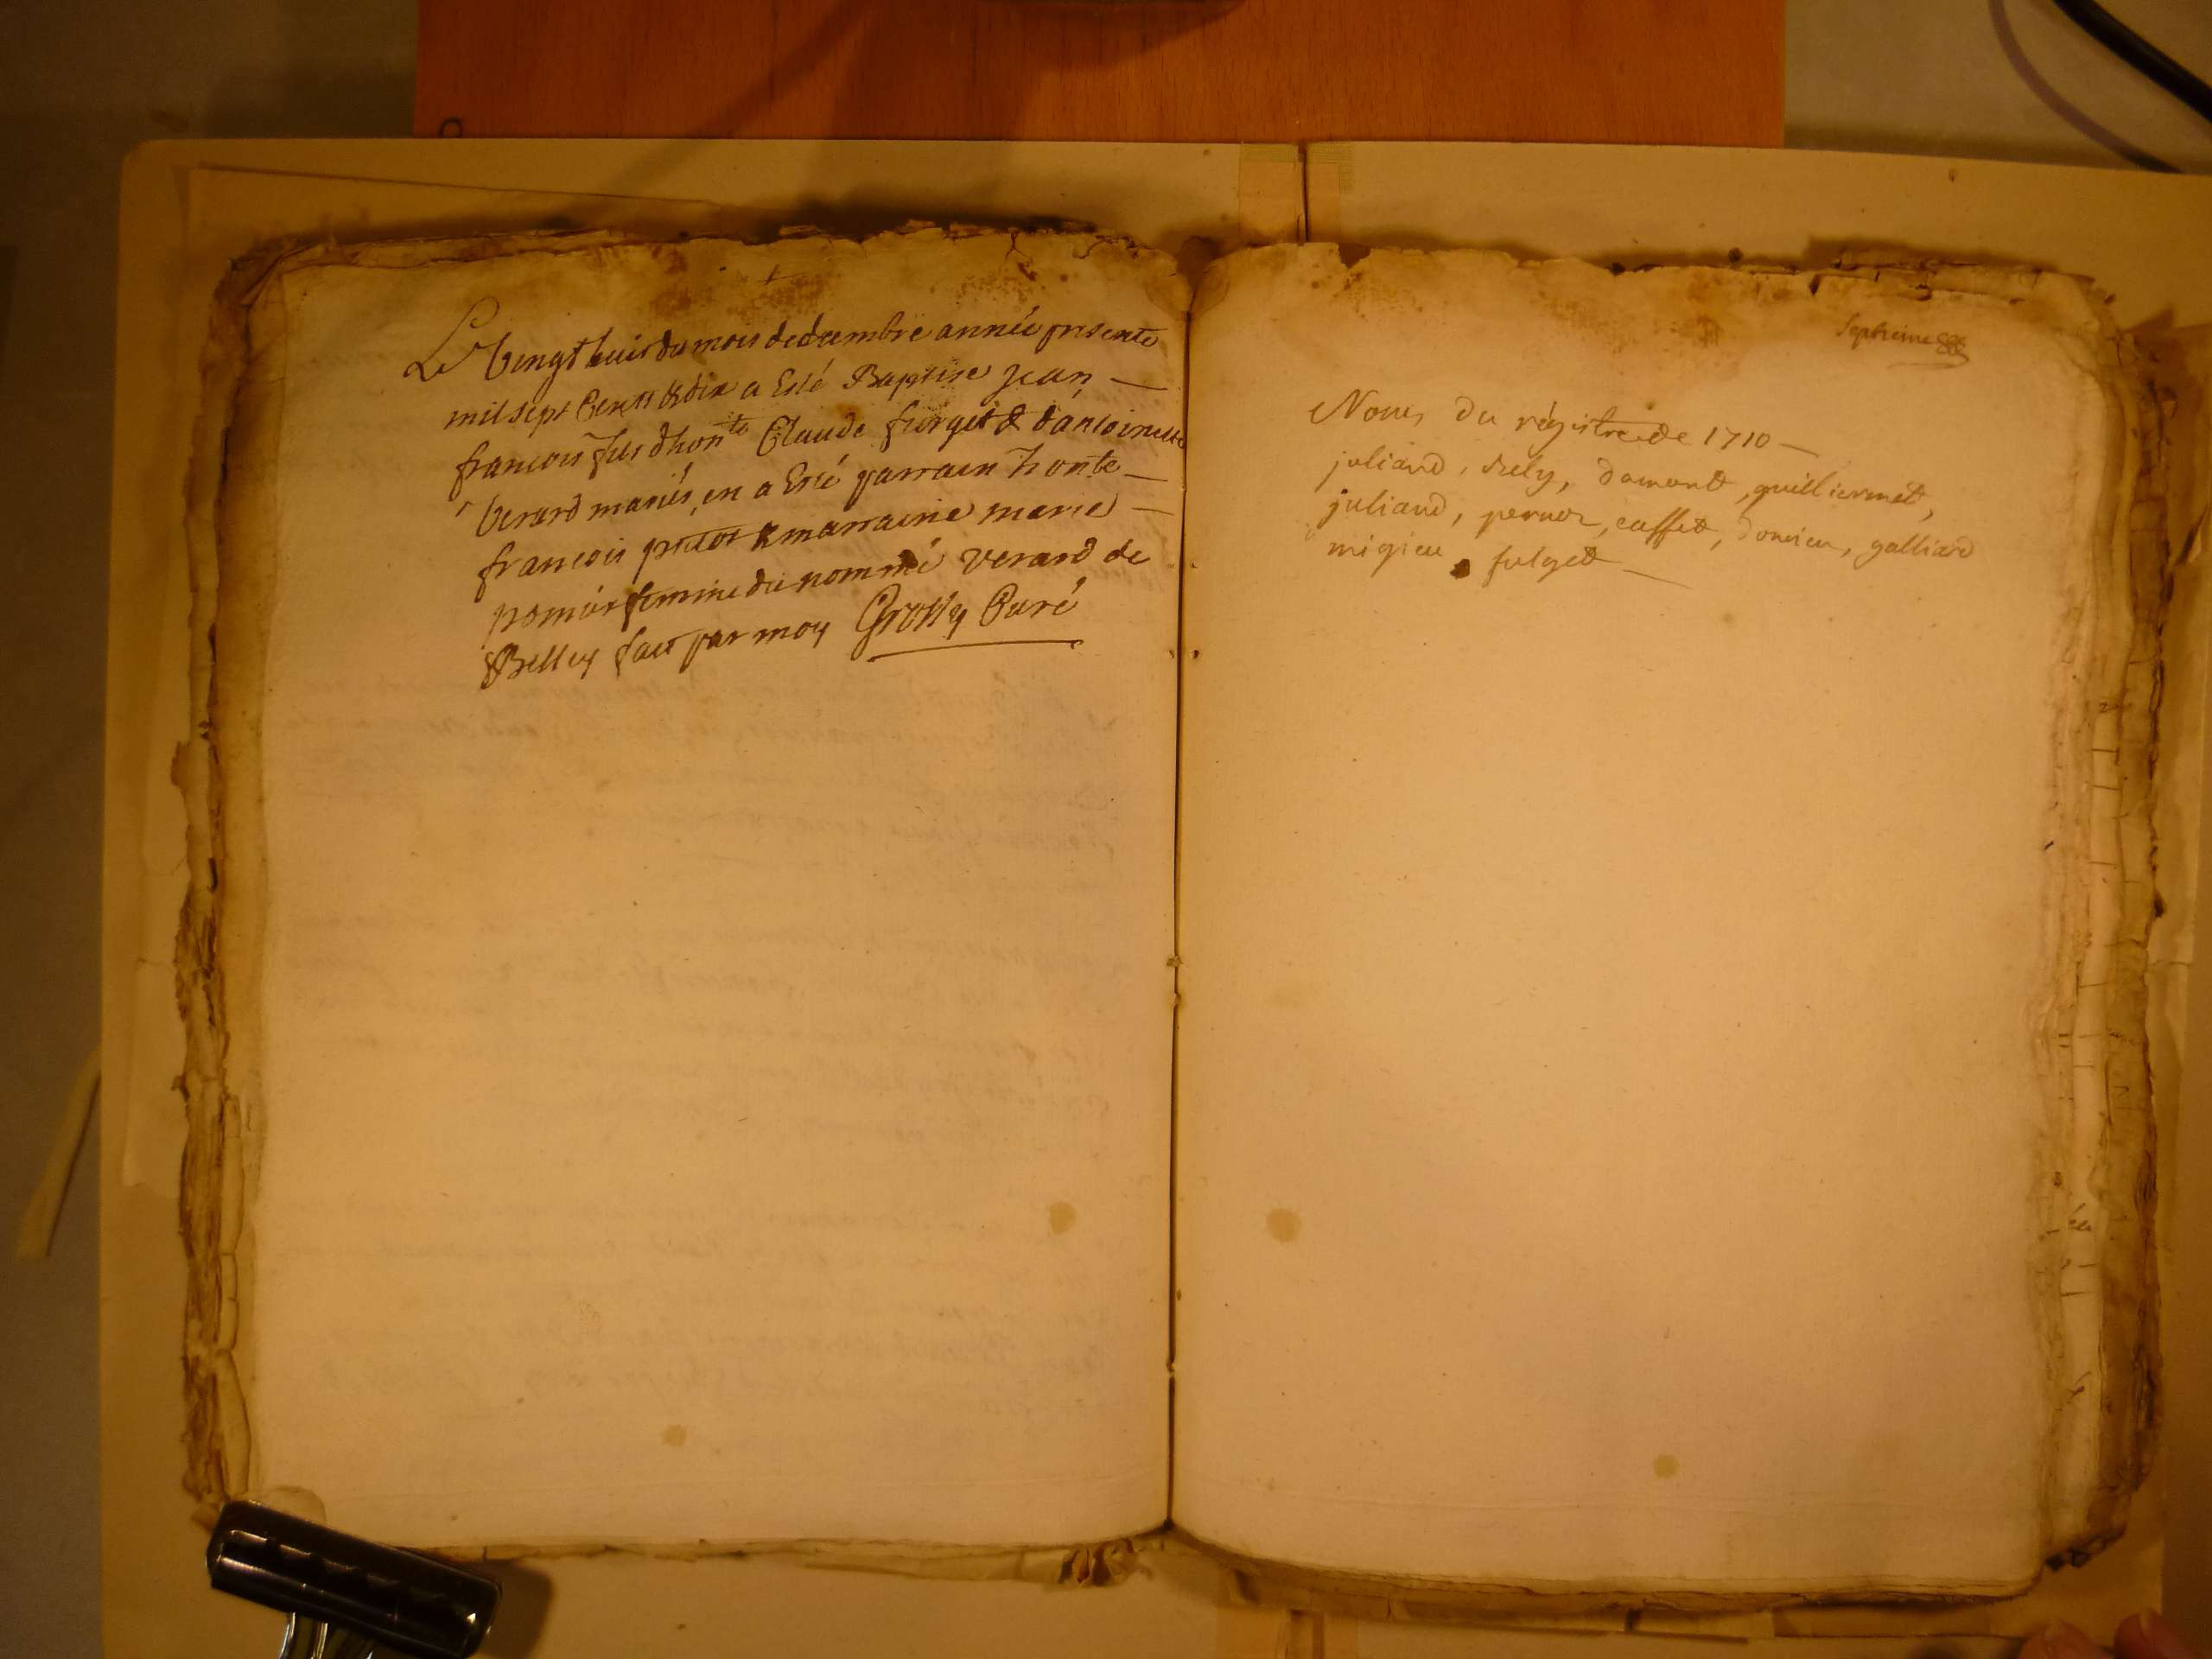 Le Vingt huit du mois de decembre année presente
mil sept Cents & dix a Esté Baptise Jean
francois fils d'hon.te Claude forget & d'antoinette
Verard mariés, en a Esté parrain honte
francois & marraine marie
femme du nommé Verard de
Belley fait par moy Grossy Curé
septieme
Noms du régistre de 1710
juliand, rely, damont, guilliermet,
juliand, pernoz, caffet, doncieu, galliard
migieu fulget